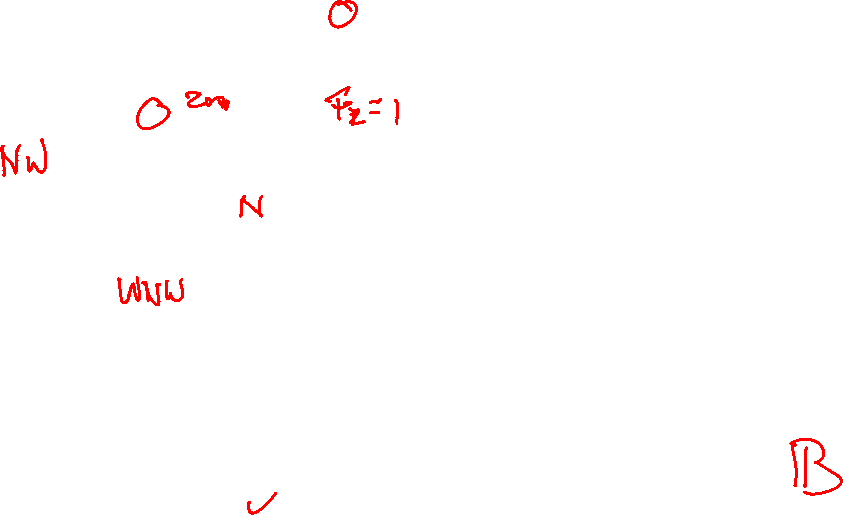 O
O 2m
F₂ = 1
NW
N
WNW
✓
B